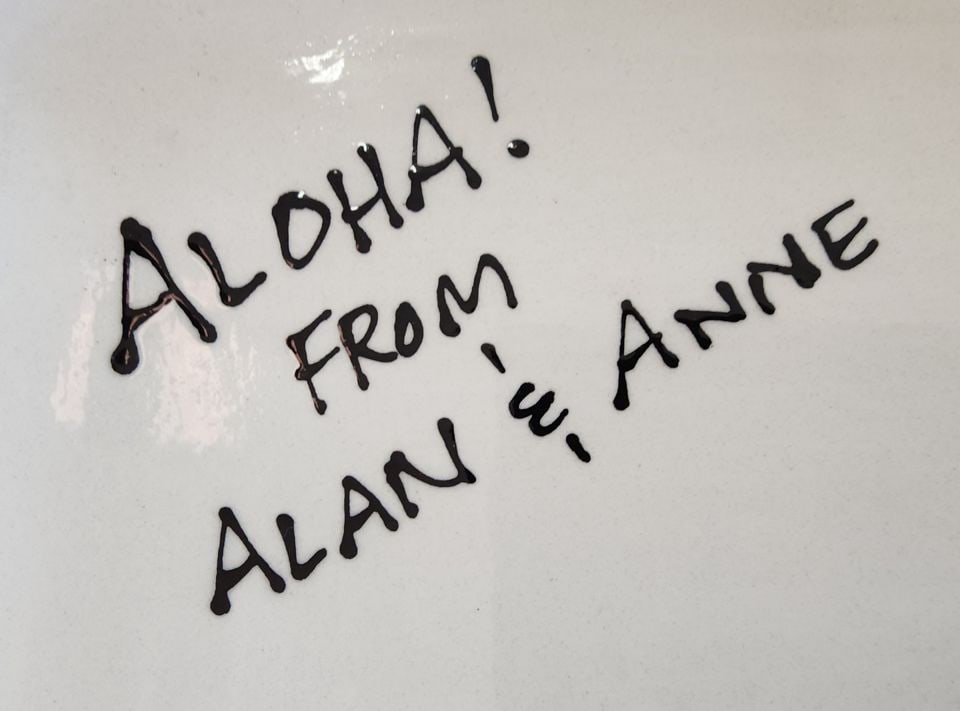 ALOHA!
FROM
ALAN & ANNE